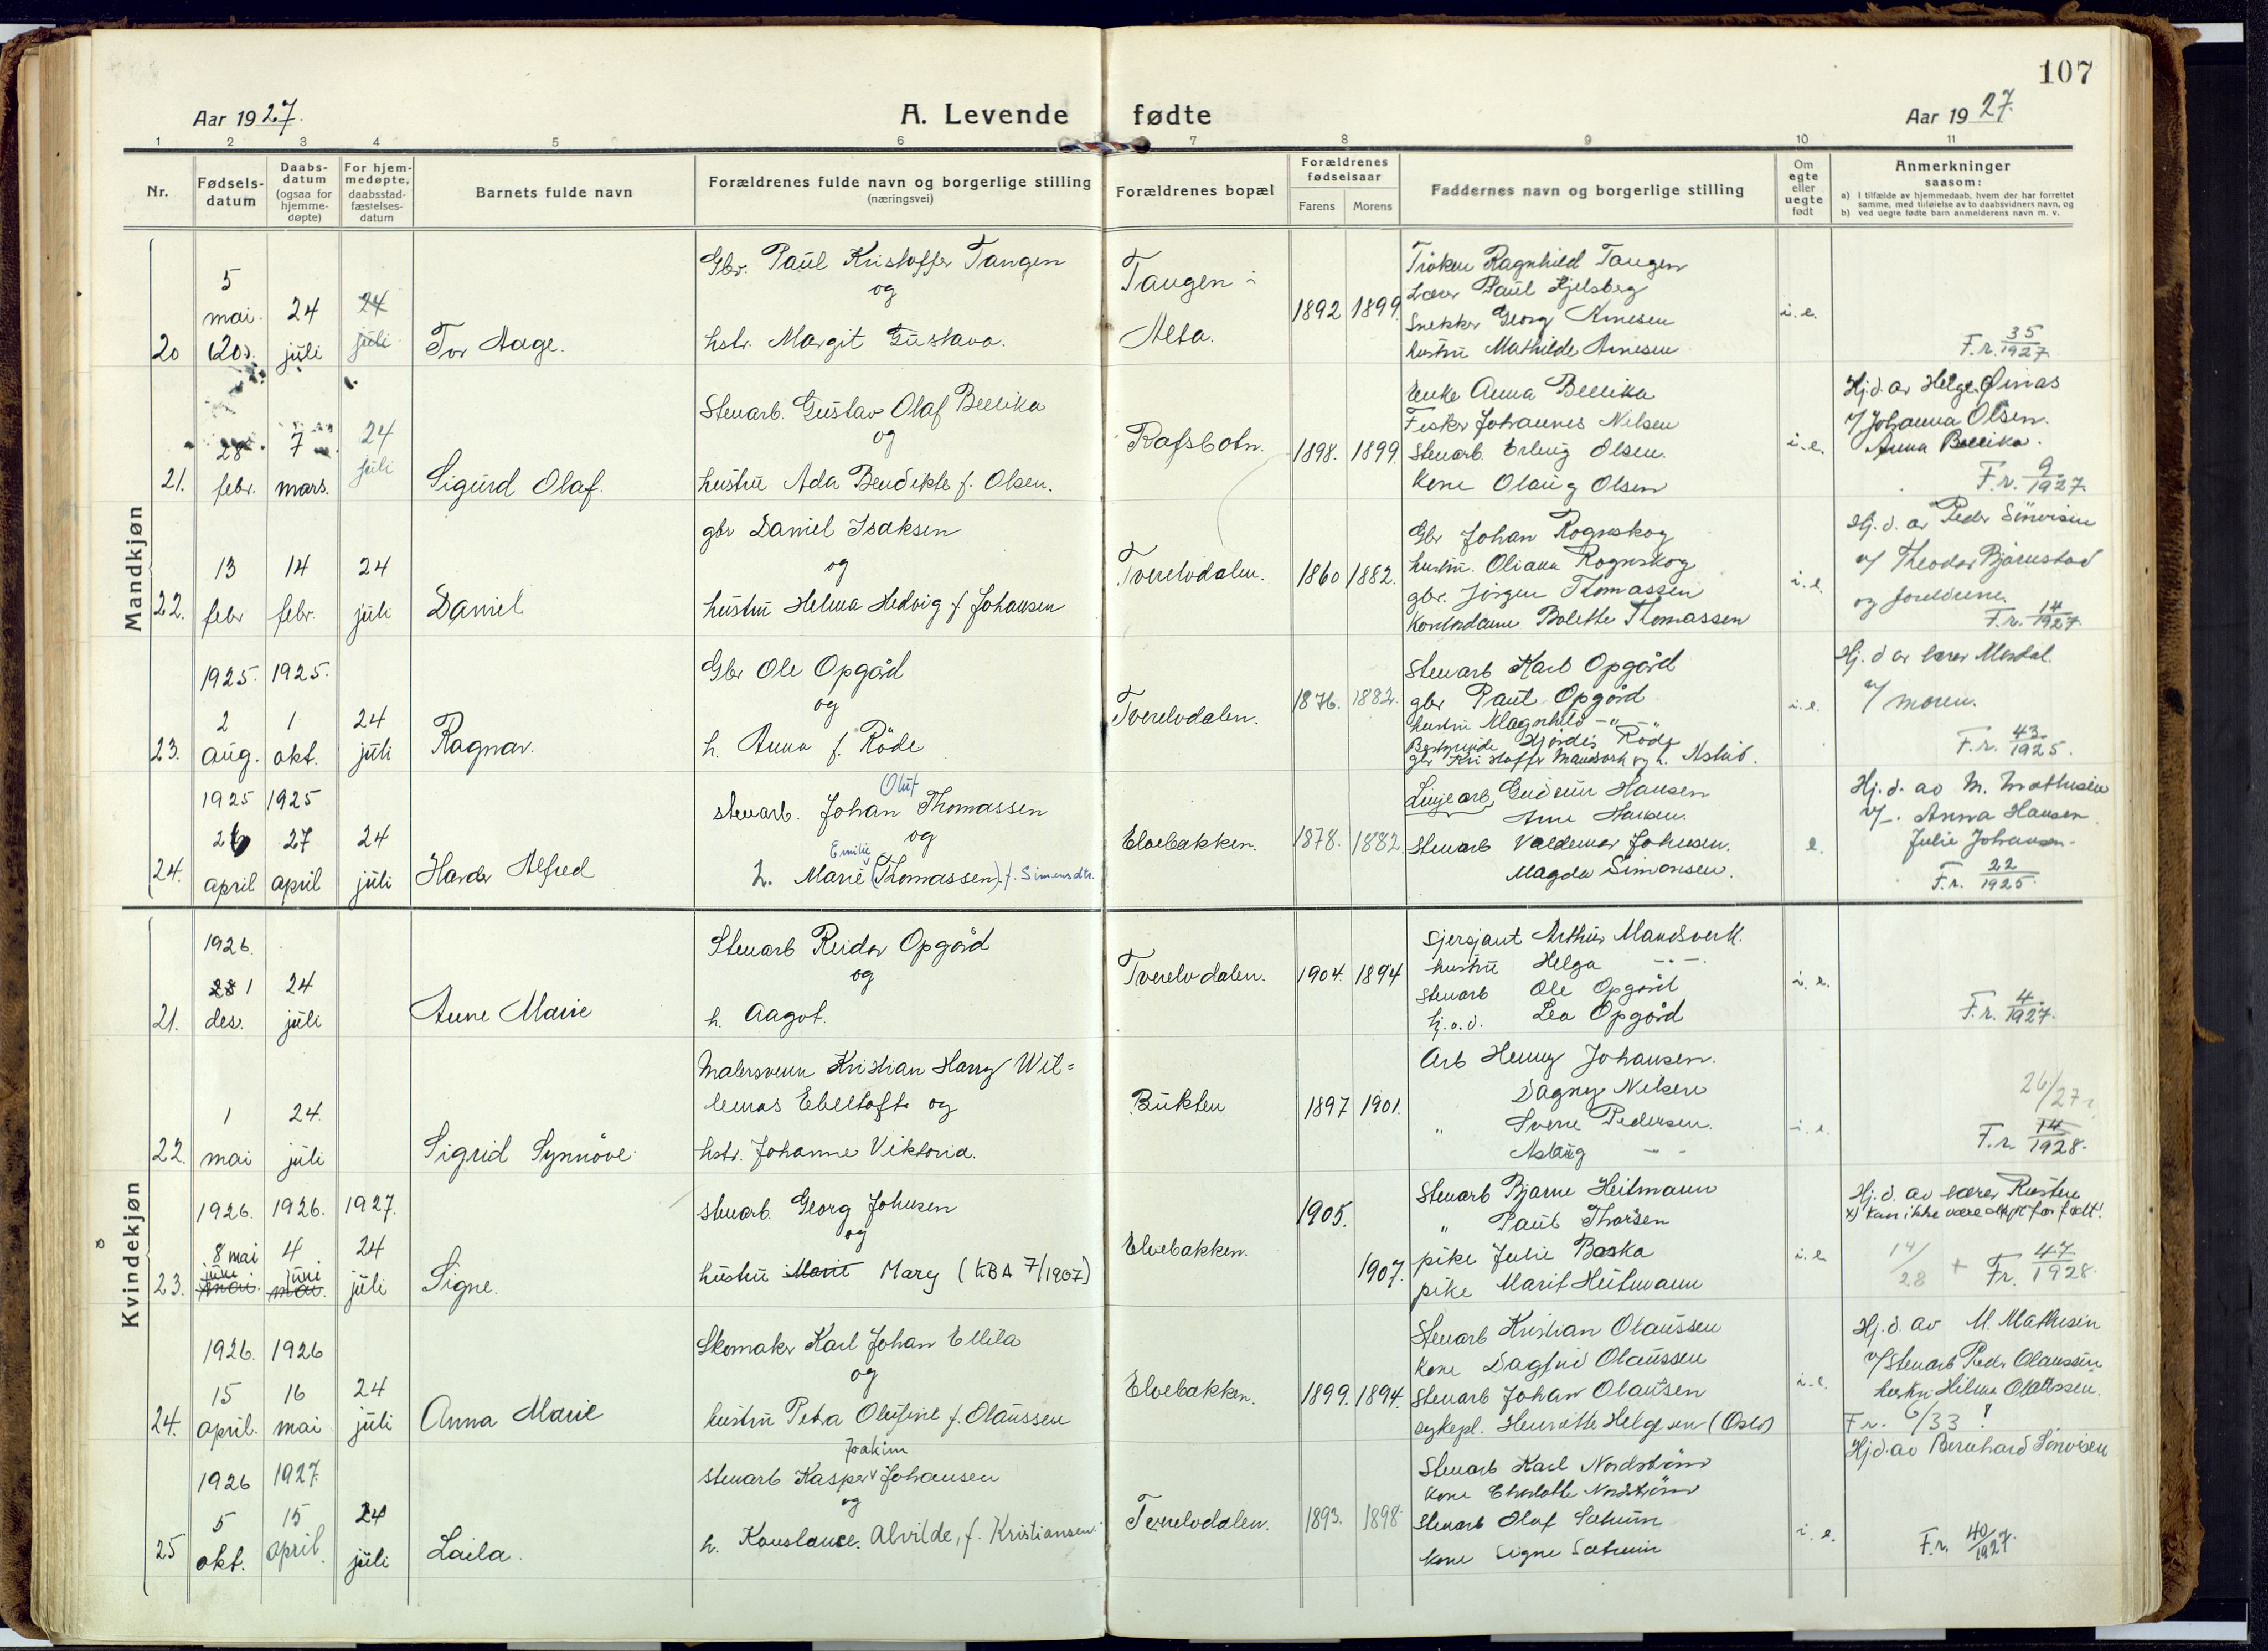 107
Aar 1927.
A. Levende fødte
Aar 1927.
1 2 3 4 5 6 7 8 9 10 11
Nr.
Fødsels-
datum
Daabs-
datum
(ogsaa for
hjemme-
døpte)
For hjem-
medøpte,
daabsstad-
fæstelses-
datum
Barnets fulde navn
Forældrenes fulde navn og borgerlige stilling
(næringsvei)
Forældrenes bopæl
Forældrenes
fødselsaar
Farens Morens
Faddernes navn og borgerlige stilling
Om
egte
eller
uegte
født
Anmerkninger
saasom:
a) i tilfælde av hjemmedaab, hvem der har forrettet
samme, med tilføielse av to daabsvidners navn, og
b) ved uegte fødte barn anmelderens navn m. v.
Mandkjøn
20
5
mai.
(20).
24
juli
24
juli
Tor Aage.
Gbr. Paul Kristoffer Tangen
og
hstr. Margit Gustava.
Tangen i
Alta.
1892 1899.
Frøken Ragnhild Tangen
Lærer Paul Hjelsberg
Snekker Georg Arnesen
hustru Mathilde Arnesen
i. e.
F.r. 35/1927.
21.
28.
febr.
7
mars.
24
juli
Sigurd Olaf.
Stenarb. Gustav Olaf Bellika
og
hustru Ada Bendikte f. Olsen.
Rafsbotn.
1898. 1899.
Enke Anna Bellika
Fisker Johannes Nilsen
Stenarb. Erling Olsen.
Kone Olaug Olsen
i. e.
Hj.d. av Helge Qvinas
v/ Johanna Olsen.
Anna Bellika.
F.r. 9/1927.
22.
13
febr
14
febr.
24
juli
Daniel
gbr Daniel Isaksen
og
hustru Helma Hedvig f. Johansen
Tverelvdalen.
1860 1882.
Gbr Johan Rognskog
hustru. Oliana Rognskog
gbr. Jörgen Thomassen
Kontordame Bolette Thomassen
i. e.
Hj. d. av Peder Simonsen
v/ Theodor Bjørnstad
og foreldrene.
F.r. 14/1927.
23.
1925.
2
aug.
1925.
1
okt.
24
juli
Ragnar.
Gbr Ole Opgård
og
h. Anna f. Röde
Tverelvdalen.
1876. 1882.
Stenarb Karl Opgård
gbr Paul Opgård
hustru Magnhild -"- -"-
Hjördis Röde
gbr Kristoffer Mandsverk og h. Aslaug.
i. e.
Hj. d av lærer Mosdal.
v/ moren.
F.r. 43/1925.
24.
1925
26
april
1925
27
april
24
juli
Harder Alfred
Oluf
stenarb. Johan Thomassen
og
Emilie
h. Marie (Thomassen) f. Simensdtr.
Elvebakken.
1878. 1882.
Linjearb. Gudmun Hansen
Anne Hansen.
Stenarb Valdemar Johnsen.
Magda Simonsen.
e.
Hj. d. av M. Mathisen
v/. Anna Hansen
Julie Johansen.
F.r. 22/1925.
Kvindekjøn
21.
1926.
28 1
des.
24
juli
Anne Marie
Stenarb Reidar Opgård
og
h. Aagot.
Tverelvdalen.
1904. 1894
Sjersjant Arthur Mandsverk.
hustru Helga -"-
Stenarb Ole Opgård
hj.o.d. Lea Opgård
i. e.
F.r. 4/1927.
22.
1
mai
24.
juli
Sigrid Synnöve.
Malersvenn Kristian Harry Wil=
lemas Ebeltoft og
hstr. Johanne Viktoria.
Bukten
1897 1901.
Arb Henny Johansen.
Dagny Nilsen
" Sverre Pedersen.
Aslaug - -
i. e.
26/27
F.r. 14/1928.
23.
1926.
8 mai
juni
mai.
1926.
4
juni
mai.
1927.
24
juli
Signe.
stenarb. Georg Johnsen
og
hustru Marit Mary (KBA 7/1907)
Elvebakken.
1905.
1907.
Stenarb Bjarne Heitmann
" Paul Thorsen
pike Julie Baska
pike Marit Heitmann
i. e.
Hj. d. av lærer Rustne
x) kan ikke være døpt før født!
14/28 + Fr. 47/1928.
24.
1926.
15
april.
1926
16
mai
24
juli
Anna Marie
Skomaker Karl Johan Ellila
og
hustru Petra Olufine f. Olaussen
Elvebakken.
1899. 1894.
Stenarb Kristian Olaussen
Kone Dagfrid Olaussen
Stenarb Johan Olausen
sykepl. Henriette Helgesen (Oslo)
i. e.
Hj. d. av M. Mathisen
v/ Stenarb Peder Olaussen
hustru Hilma Olaussen.
Fr. 6/33 !
25
1926
5
okt.
1927.
15
april.
24
juli
Laila.
Joakim
stenarb Kasper v Johansen
og
h. Konstanse. Alvilde, f. Kristiansen.
Tverelvdalen.
1893. 1898
Stenarb Karl Nordström
Kone Charlotte Nordström
Stenarb Olaf Sætrum
Kone Signe Sætrum
i. e.
Hj.d. av Bernhard Simonsen
F.r. 40/1927.